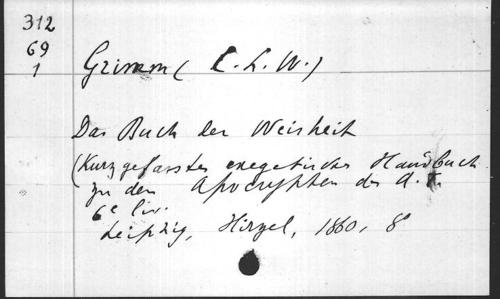 312
69
1
Grimm (C. L. W.)
Das Buch der Weisheit
(Kurzgefasstes exegetisches Handbuch
zu den Apocryphen des A. T.
6e liv.
Leipzig, Hirzel, 1860, 8°